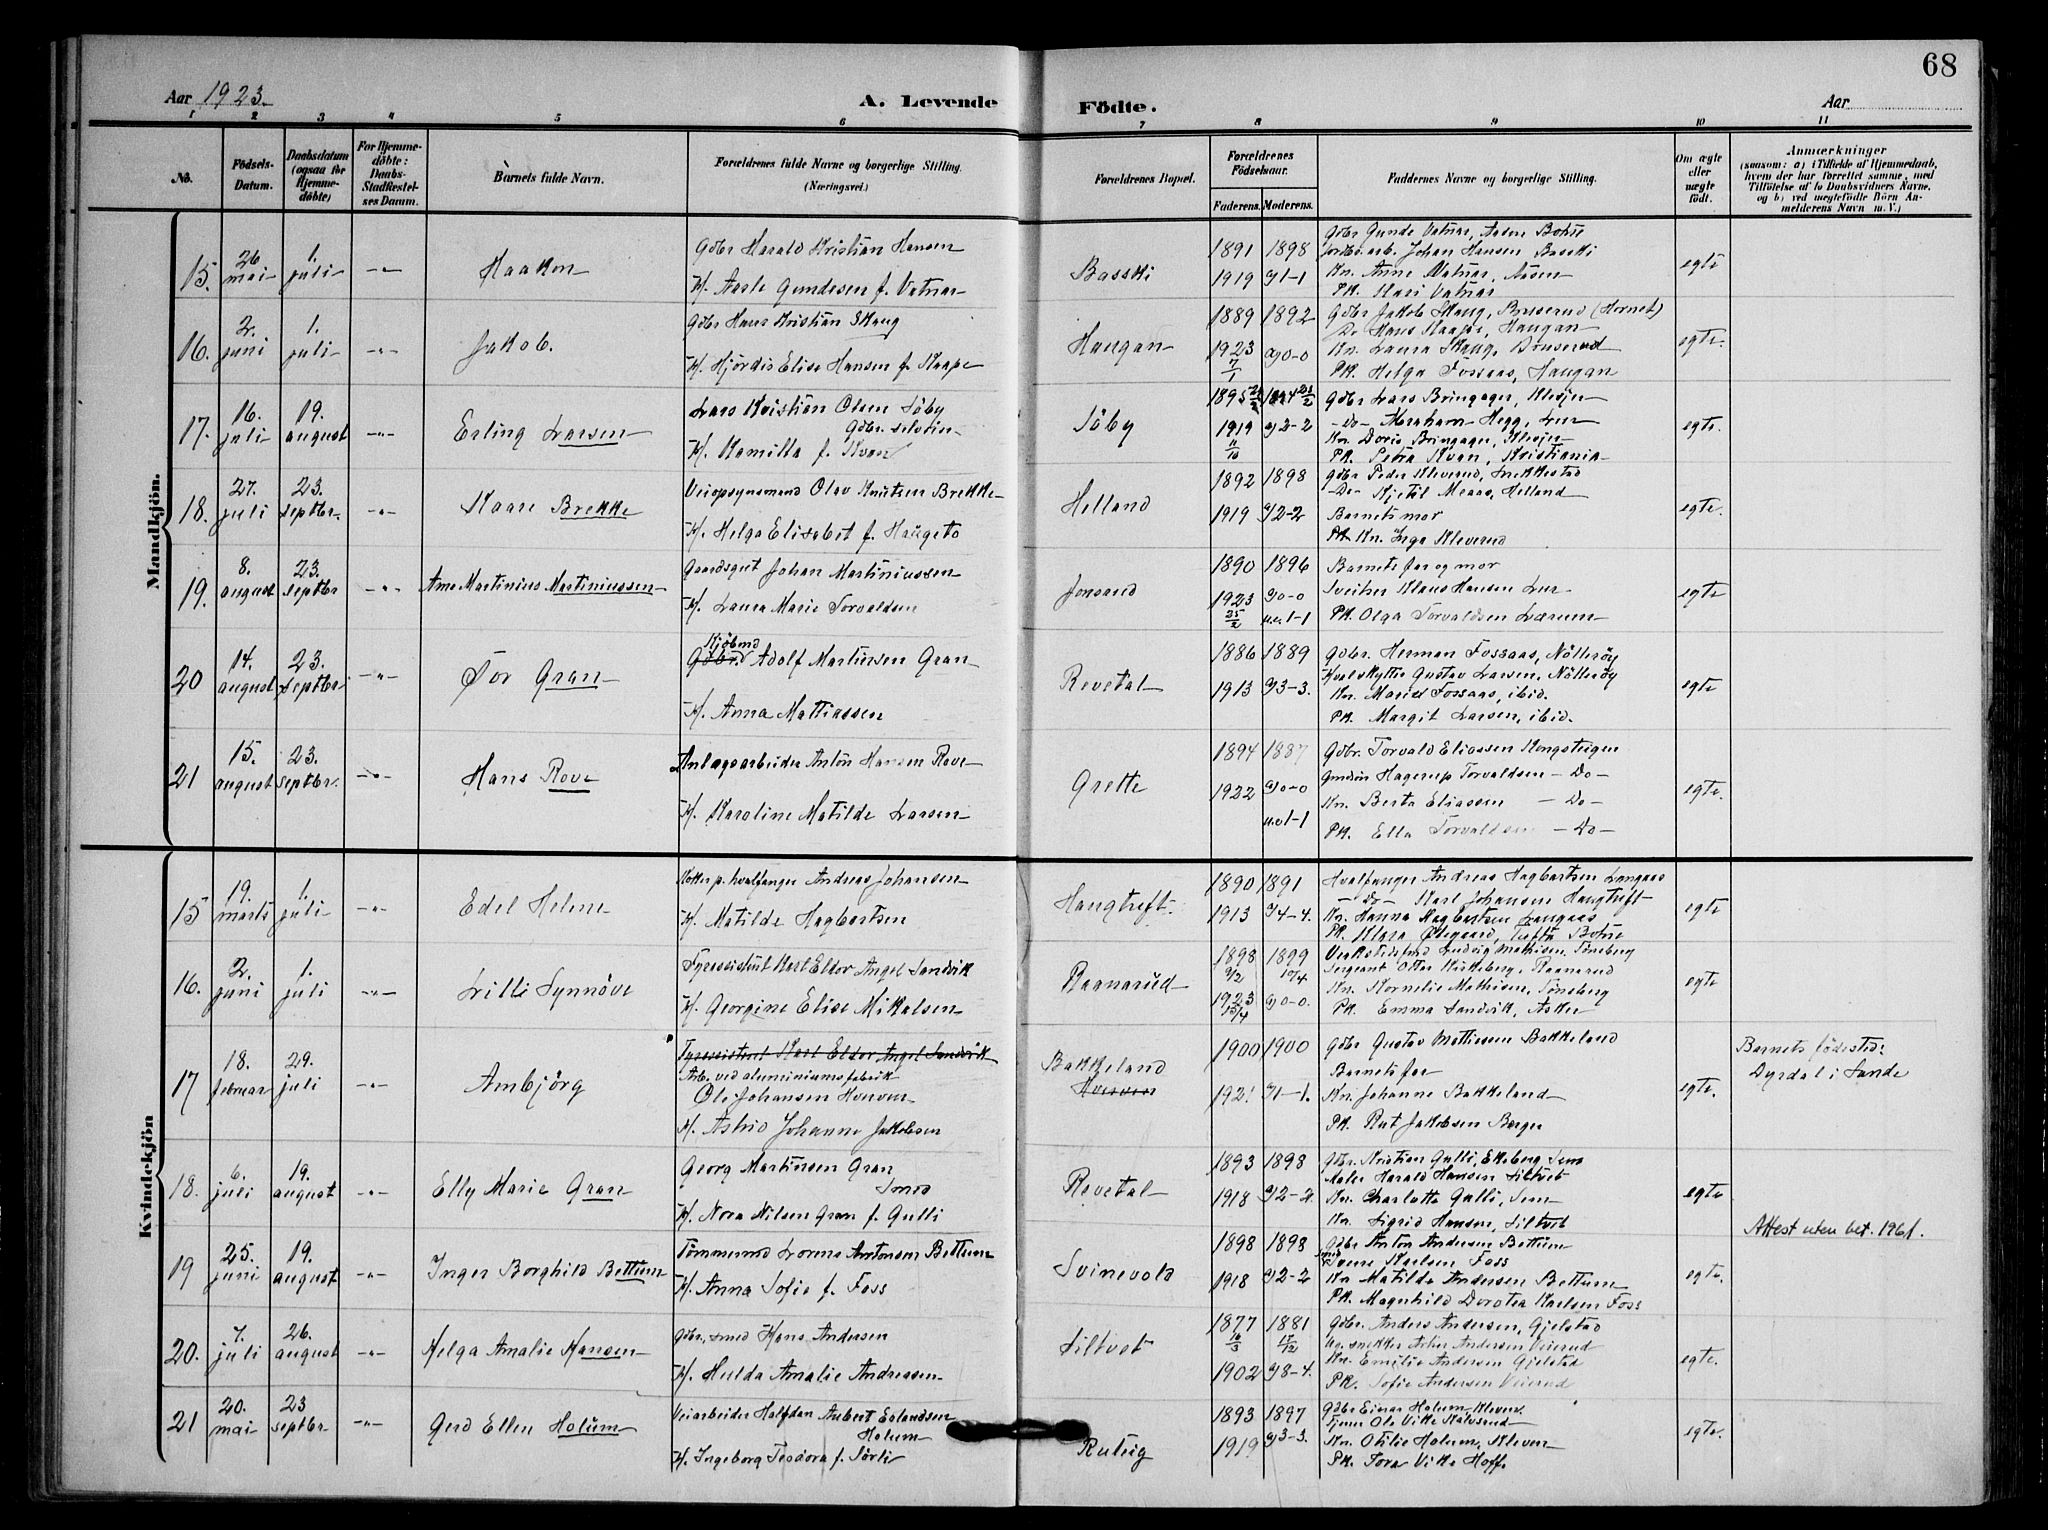 68
Aar 1923.
A. Levende Födte.
Aar
1 2 3 4 5 6 7 8 9 10 11
No.
Födsels-Datum.
Daabsdatum (ogsaa for Hjemme-döbte)
For Hjemme-döbte: Daabs-Stadfæstel-ses Datum.
Barnets fulde Navn.
Forældrenes fulde Navne og borgerlige Stilling. (Næringsvei.)
Forældrenes Bopæl.
Forældrenes Födselsaar.
Faderens. Moderens.
Faddernes Navne og borgerlige Stilling.
Om ægte eller uægte födt.
Anmærkninger
(saasom: a) i Tilfælde af Hjemmedaab, hvem der har forrettet samme, med Tilföielse af to Daabsvidners Navne, og b) ved uægtefödte Börn An-melderens Navn m. V.)
Mandkjön.
15. 26 mai 1. juli -"- Haakon
Gdbr Harald Kristian Hansen
H. Aasle Gundesen f. Vatnar
Basski
1891 1898
1919 g1-1
Gdbr Gunde Vatnar, Aasne Bohre
Johan Hansen Basski
Kn. Anne Vatnar, Aasen
Pk. Kari Vatnar
egte
16. 2. juni 1. juli -"- Jakob.
Gdbr Hans Kristian Skaug
H. Hjördis Elise Hansen f. Kaape
Haugan
1889 1892
1923 7/1 g0-0
Gdbr Jakob Skaug, Buserud (Hornet)
Do Hans Kaape, Haugan
Kn. Laura Skaug, Bruserud
Pk. Helga Fossaas, Haugan
egte.
17. 16. juli 19. august -"- Erling Larsen
Lars Kristian Olsen Söby
Gdbr. selveier
H. Kamilla f. Kvan
Söby
1919 11/10 g2-2
Gdbr Lars Bringager, Klesjer
-Do- Abraham Hegg, Lur
Kn. Doris Bringager, Klesjer
Pk. Petra Kvan, Kristiania
egte.
18. 27. juli 23. septbr. -"- Kaare Brekke
Veiopsynsmand Olav Knutsen Brekke
H. Helga Elisabet f. Haugeto
Helland
1892 1898
1919 g2-2
Gdbr Peder Kleverud, Snekkestad
-Do- Kjetil Meaas, Helland
Barnets mor
Pk. Kn. Inga Kleverud
egte.
19. 8. august 23. septbr -"- Arne Martinius Martiniussen
Gaardsgut Johan Martiniussen
H. Laura Marie Torvaldsen
Jonsrud
1890 1896
1923 25/2 g0-0
u.e.1-1
Barnets far og mor
Sveitser Klaus Hansen Lur
Pk. Olga Torvaldsen Lærum
egte
20 14. august 23. septbr. -"- Tor Gran
Kjöbmd
Gdbr. Adolf Martinsen Gran
H. Anna Mathiassen
Revetal
1886 1889
1913 g3-3.
Gdbr. Herman Fossaas, Nötteröy
Hvalskytter Gustav Larsen, Nötteröy
Kn. Marie Fossaas, ibid.
Pk. Margit Larsen, ibid.
egte
21 15. august 23. septbr. -"- Hans Rove
Anlægsarbeider Anton Hansen Rove
H. Karoline Matilde Larsen
Grette
1894 1887
1922 g0-0
u.e1-1
Gdbr. Torvald Eliassen Kongsteigen
Hagerup Torvaldsen -Do-
Kn. Berta Eliassen -Do-
Pk. Ella Torvaldsen -Do-
egte.
Kvindekjön
15 19. marts 1. juli -"- Edel Helene
Kokk p. hvalfanger Andreas Johansen
H. Matilde Hagbartsen
Haugtuft.
1890 1891
1913 g4-4.
Hvalfanger Andreas Hagbartsen Langaas
-Do- Karl Johansen Haugtuft
Kn. Hanna Hagbartsen Langaas
Pk. Klara Ödegaard, Tufta Bohre
egte
16. 2. juni 1. juli -"- Lilli Synnöve
Fyrassistent Karl Eldor Angel Sandvik
H. Georgine Elise Mikalsen
Raanarud
1898 9/2 1899 10/4
1923 15/4 g0-0.
Ludvig Mathisen, Tönsberg
Sergeant Otto Kirkeberg, Raanarud
Kn. Kornelie Mathisen, Tönsberg
Pk. Emma Sandvik, Asker
egte
17 18. februar 29. juli -"- Ambjörg
Fyrassistent Karl Eldor Angel Sandvik
Arb. ved aluminiumsfabrik
Ole Johansen Hverven
H. Astrid Johanne Jakobsen
Bakkeland
Hverven
1900 1900
1921 g1-1.
Gdbr Gustav Mathisen Bakkeland
Barnets far
Kn. Johanne Bakkeland
Pk. Rut Jakobsen Berger
egte.
Barnets födested:
Dyrdal i Sande
18. 6. juli 19. august -"- Elly Marie Gran
Georg Martinsen Gran
Smed
H. Nora Nilsen Gran f. Gulli
Revetal
1893 1898
1918 g2-2.
Gdbr. Kristian Gulli, Ekeberg Sem
Maler Harald Hansen Siltvet
Kn. Charlotte Gulli, Sem
Kn Sigrid Hansen, Siltvet
egte
19 25. juni 19. august -"- Inger Borghild Bettum
Tömmermd Lorens Antonsen Bettum
H. Anna Sofie f. Foss
Svinevold
1898 1898
1918 g2-2
Gdbr Anton Andersen Bettum
Smed Sverre Karlsen Foss
Kn Matilde Andersen Bettum
Pk. Magnhild Dorotea Karlsen Foss
egte.
Attest uten bet. 1961.
20. 7. juli 26. august -"- Helga Amalie Hansen
Gdbr., smed Hans Andersen
H. Hulda Amalie Andreassen
Siltvet
1877 16/3 1881 17/2
1902 g8-4.
Gdbr. Anders Andersen, Gjelstad
snekker Artur Andersen Veierud
Kn. Emilie Andersen Gjelstad
Pk. Sofie Andersen Veierud
egte.
21 20. mai 23 septbr -"- Gerd Ellen Holum
Veiarbeider Halfdan Aubert Erlandsen
Holum
H. Ingeborg Teodora f. Sörli
Ruteig
1893 1897
1919 g3-3.
Gdbr Einar Holum Kleven.
Ole Vikke Kalvsrud
Kn. Otilie Holum, Kleven
Pk. Tora Vikke Hoff.
egte.